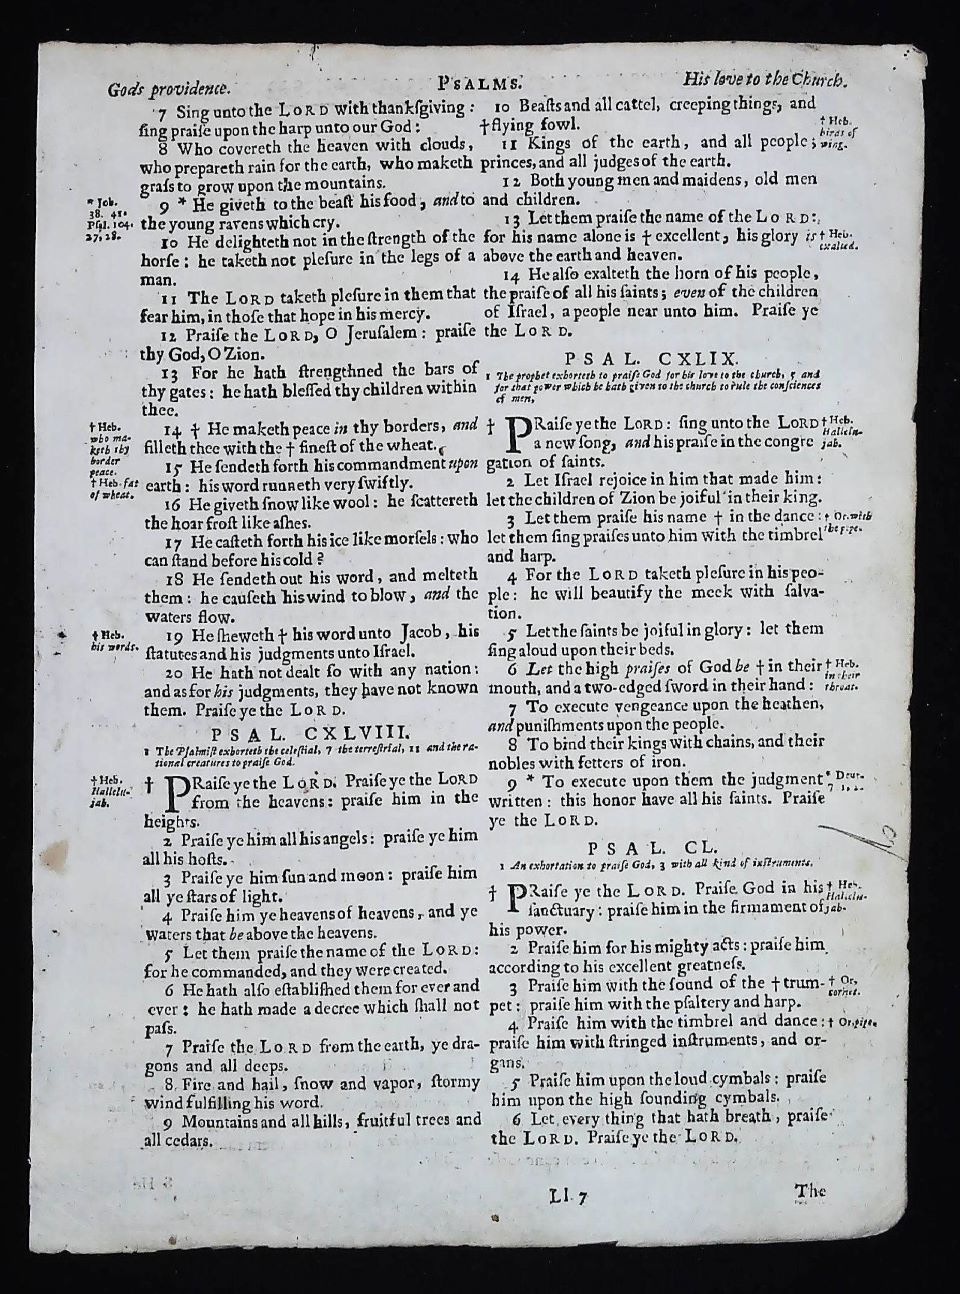 Gods providence. PSALMS. His love to the Church.
7 Sing unto the LORD with thankſgiving:
ſing praiſe upon the harp unto our God:
8 Who covereth the heaven with clouds,
who prepareth rain for the earth, who maketh
graſs to grow upon the mountains.
* Job.
38. 41.
Pſal. 104.
27, 28.
9 * He giveth to the beaſt his food, and to
the young ravens which cry.
10 He delighteth not in the ſtrength of the
horſe: he taketh not pleſure in the legs of a
man.
11 The LORD taketh pleſure in them that
fear him, in thoſe that hope in his mercy.
12 Praiſe the LORD, O Jeruſalem: praiſe
thy God, O Zion.
13 For he hath ſtrengthned the bars of
thy gates: he hath bleſſed thy children within
thee.
† Heb.
who ma-
keth thy
border
peace.
† Heb. fat
of wheat.
14 † He maketh peace in thy borders, and
filleth thee with the † fineſt of the wheat.
15 He ſendeth forth his commandment upon
earth: his word runneth very ſwiftly.
16 He giveth ſnow like wool: he ſcattereth
the hoar froſt like aſhes.
17 He caſteth forth his ice like morſels: who
can ſtand before his cold?
18 He ſendeth out his word, and melteth
them: he cauſeth his wind to blow, and the
waters flow.
† Heb.
his words.
19 He ſheweth † his word unto Jacob, his
ſtatutes and his judgments unto Iſrael.
20 He hath not dealt ſo with any nation:
and as for his judgments, they have not known
them. Praiſe ye the LORD.
PSAL. CXLVIII.
1 The Pſalmiſt exhorteth the celeſtial, 7 the terreſtrial, 11 and the ra-
tional creatures to praiſe God.
† Heb.
Hallelu-
jah.
† PRaiſe ye the LORD. Praiſe ye the LORD
from the heavens: praiſe him in the
heights.
2 Praiſe ye him all his angels: praiſe ye him
all his hoſts.
3 Praiſe ye him ſun and moon: praiſe him
all ye ſtars of light.
4 Praiſe him ye heavens of heavens, and ye
waters that be above the heavens.
5 Let them praiſe the name of the LORD:
for he commanded, and they were created.
6 He hath alſo eſtabliſhed them for ever and
ever: he hath made a decree which ſhall not
paſs.
7 Praiſe the LORD from the earth, ye dra-
gons and all deeps.
8 Fire and hail, ſnow and vapor, ſtormy
wind fulfilling his word.
9 Mountains and all hills, fruitful trees and
all cedars.
10 Beaſts and all cattel, creeping things, and
† flying fowl.
† Heb.
birds of
wing.
11 Kings of the earth, and all people;
princes, and all judges of the earth.
12 Both young men and maidens, old men
and children.
13 Let them praiſe the name of the LORD:
for his name alone is † excellent, his glory is
above the earth and heaven.
† Heb.
exalted.
14 He alſo exalteth the horn of his people,
the praiſe of all his ſaints; even of the children
of Iſrael, a people near unto him. Praiſe ye
the LORD.
PSAL. CXLIX.
1 The prophet exhorteth to praiſe God for his love to the church, 5 and
for that power which he hath given to the church to rule the conſciences
of men,
† PRaiſe ye the LORD: ſing unto the LORD
a new ſong, and his praiſe in the congre
gation of ſaints.
† Heb.
Hallelu-
jah.
2 Let Iſrael rejoice in him that made him:
let the children of Zion be joiful in their king.
3 Let them praiſe his name † in the dance:
let them ſing praiſes unto him with the timbrel
and harp.
† Or, with
the pipe.
4 For the LORD taketh pleſure in his peo-
ple: he will beautify the meek with ſalva-
tion.
5 Let the ſaints be joiful in glory: let them
ſing aloud upon their beds.
6 Let the high praiſes of God be † in their
mouth, and a two-edged ſword in their hand:
† Heb.
in their
throat.
7 To execute vengeance upon the heathen,
and puniſhments upon the people.
8 To bind their kings with chains, and their
nobles with fetters of iron.
9 * To execute upon them the judgment
written: this honor have all his ſaints. Praiſe
ye the LORD.
* Deut.
PSAL. CL.
1 An exhortation to praiſe God, 3 with all kind of inſtruments.
† PRaiſe ye the LORD. Praiſe God in his
ſanctuary: praiſe him in the firmament of
his power.
† Heb.
Hallelu-
jah.
2 Praiſe him for his mighty acts: praiſe him
according to his excellent greatneſs.
3 Praiſe him with the ſound of the † trum-
pet: praiſe him with the pſaltery and harp.
† Or,
cornet.
4 Praiſe him with the timbrel and dance:
praiſe him with ſtringed inſtruments, and or-
gans.
† Or, pipe.
5 Praiſe him upon the loud cymbals: praiſe
him upon the high ſounding cymbals.
6 Let every thing that hath breath, praiſe
the LORD. Praiſe ye the LORD.
Ll 7 The